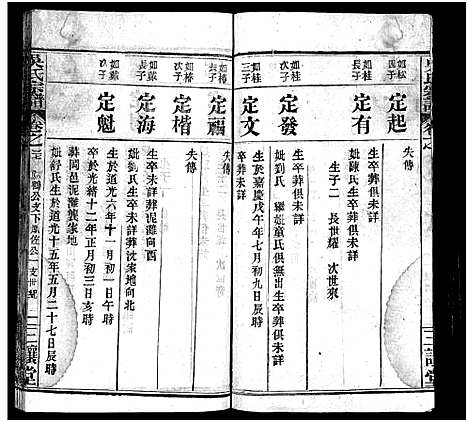 失傳
如松
四子
定起
生卒葬俱未詳
妣陳氏生卒葬俱未詳
生子二 長世耀 次世來
如桂
長子
定有
如桂
次子
定發
生卒葬俱未詳
妣劉氏 繼妣童氏俱無出生卒葬俱未詳
如桂
三子
定文
生於嘉慶戊午年七月初九日辰時
卒葬未詳
失傳
如椿
長子
定福
失傳
如椿
次子
定楷
生卒未詳葬泥灘向酉
妣劉氏生卒未詳葬沈家地向北
如戴
長子
定海
生於道光六年十一月初一日子時
卒於光緒十二年正月初三日亥時
葬周邑泥灘龔家地
妣舒氏生於道光十五年五月二十七日辰時
如戴
次子
定魁
吳氏宗譜
卷之
公支下鳳佐公一支世紀
三讓堂